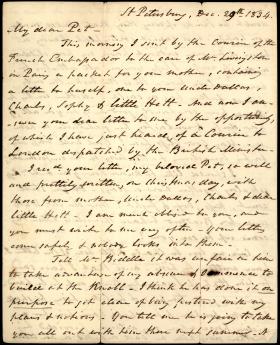 St Petersburg, Dec. 29th 1834.
My dear Pet
This morning I sent by the Courier of the
French Embassador to the care of Mr Livingston
in Paris a packet for your mother, containing
a letter to herself, one to your uncle Dallas,
Charles, Sophy & little Hett. And now I an-
swer your dear letter to me by the opportunity,
of which I have just heard, of a Courier to
London dispatched by the British Minister.
I recd your letter, my beloved Pet, so well
and prettily written, on Christmas day, with
those from mother, uncle Dallas, Charles & dear
little Hett. I am much obliged to you, and
you must write to me very often. Your letters
come safely & nobody looks into them.
Tell Mr Biddle it was unfair in him
to take advantage of my absence to
build at the Knoll. I think he has done it on
purpose to get clear of being pestered with my
plans & notions. You tell me he is going to take
you all out with him there next summer. A